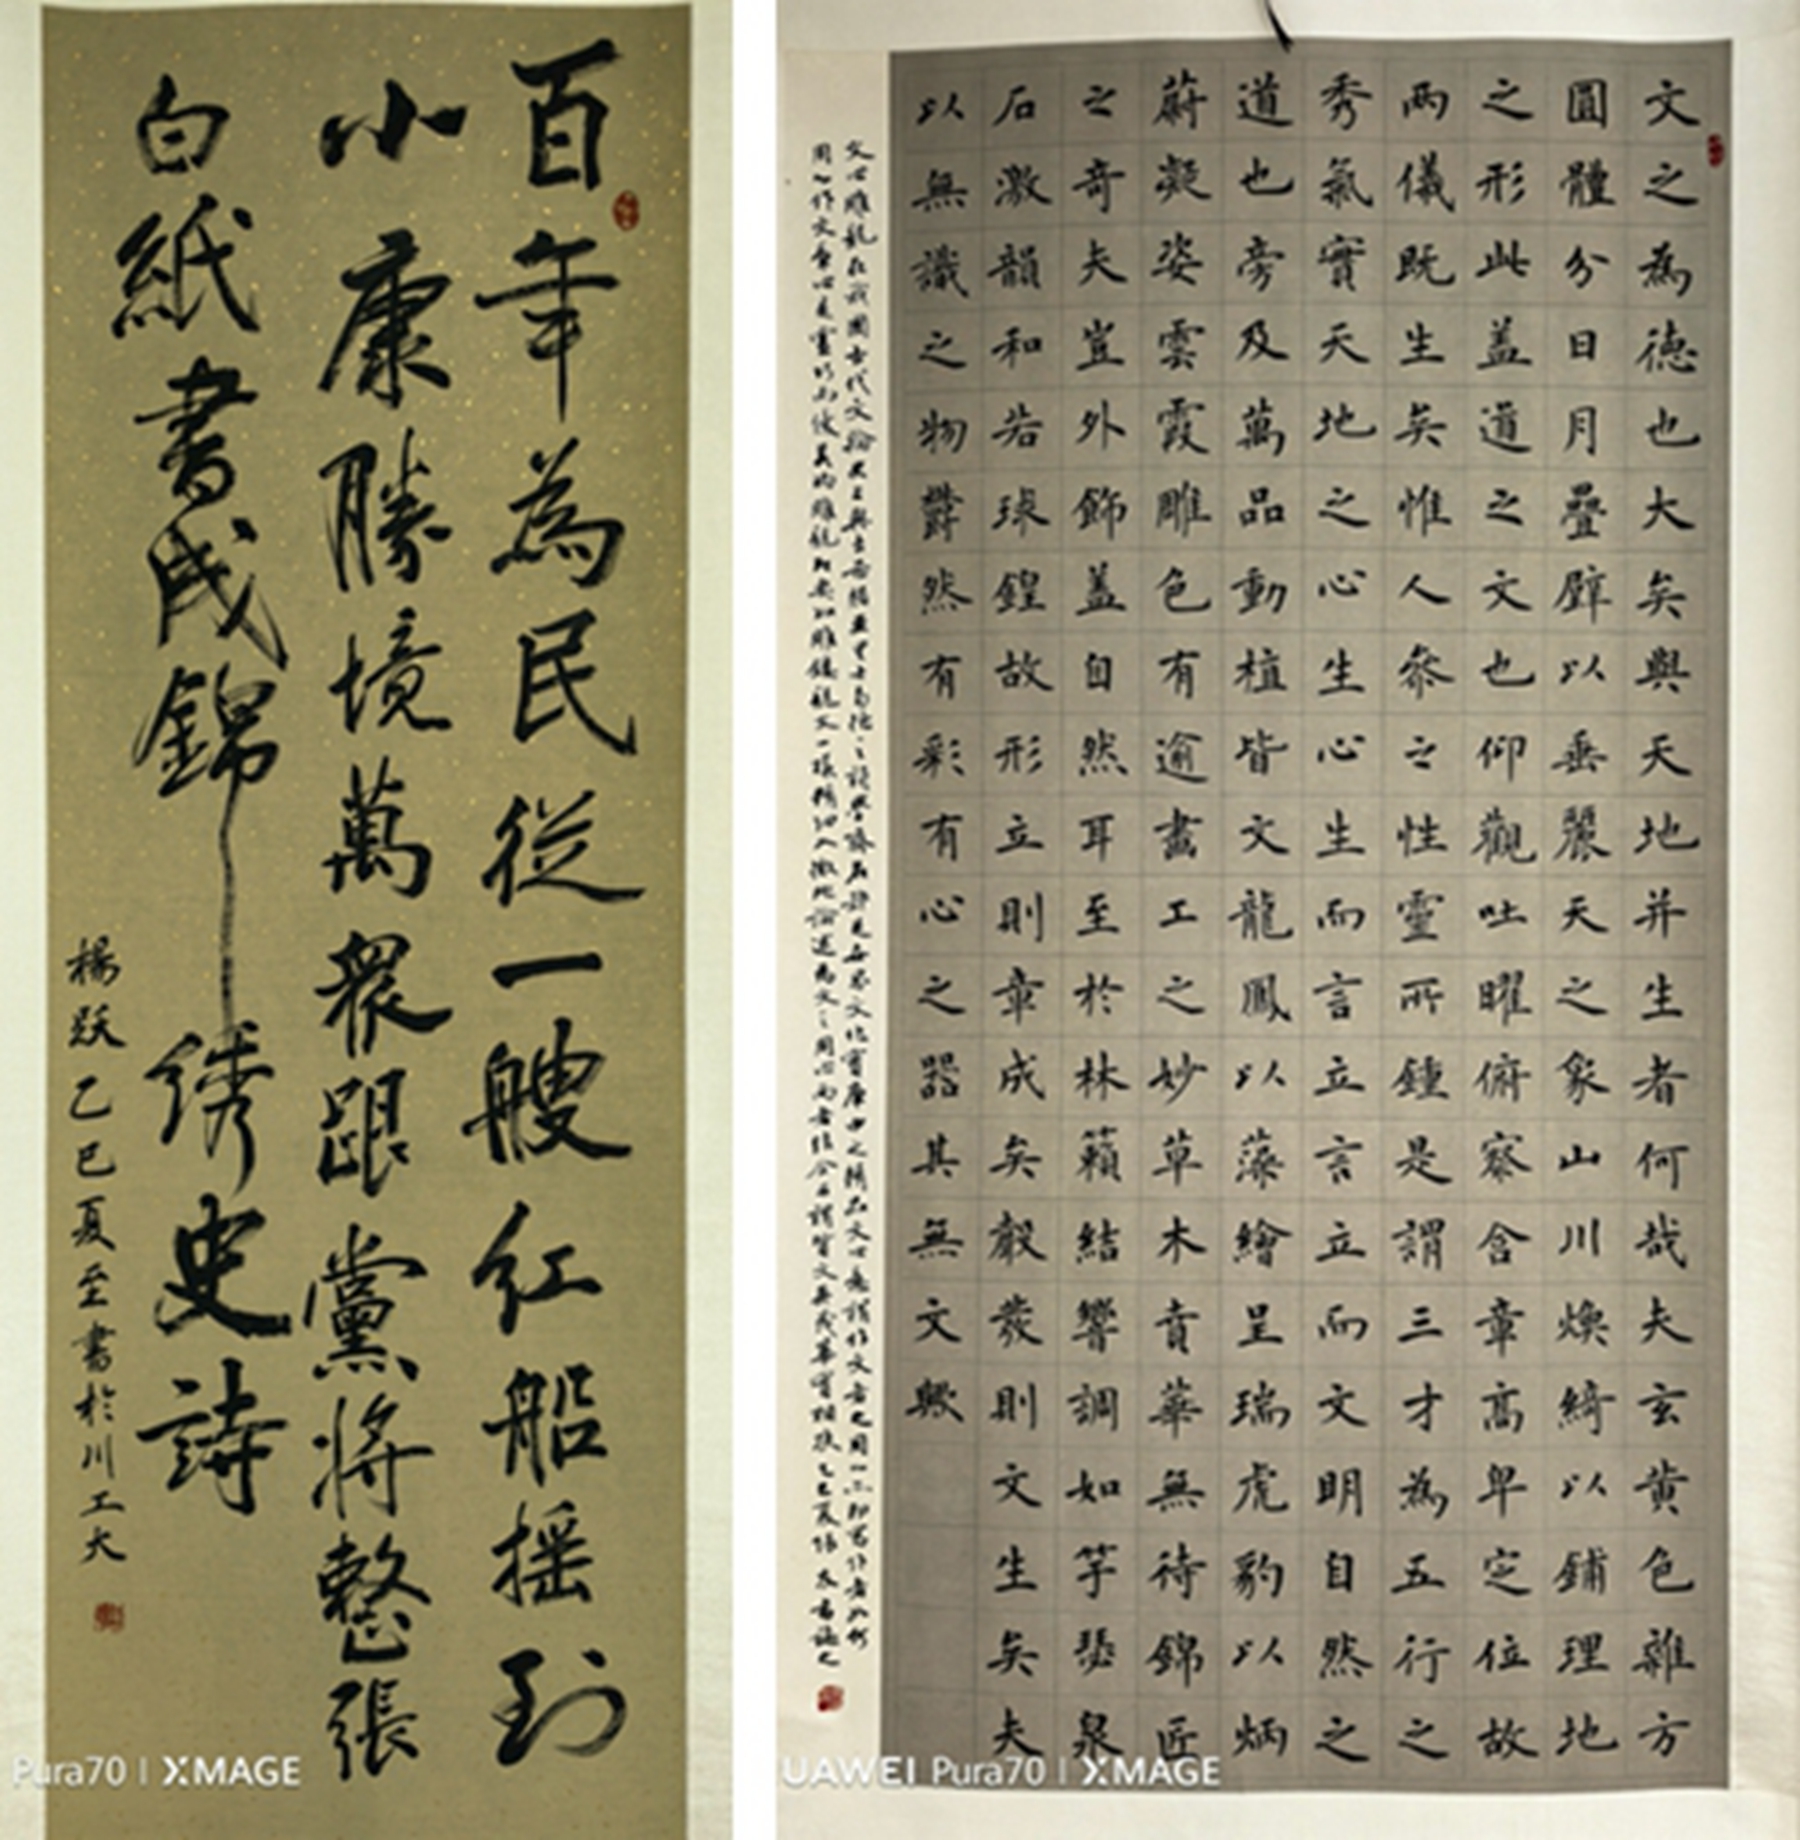 百年為民從一艘红船摇到
小康勝境萬衆跟黨将整張
白紙書成錦绣史詩
楊跃乙巳夏至書於川工大
Pura70 | XMAGE
文之為德也大矣與天地并生者何哉夫玄黄色雜方
圓體分日月疊璧以垂麗天之象山川煥綺以鋪理地
之形此蓋道之文也仰觀吐曜俯察含章高卑定位故
两儀既生矣惟人参之性靈所鍾是謂三才為五行之
秀氣實天地之心生心生而言立言立而文明自然之
道也旁及萬品動植皆文龍鳳以藻繪呈瑞虎豹以炳
蔚凝姿雲霞雕色有逾畫工之妙草木賁華無待錦匠
之奇夫豈外飾蓋自然耳至於林籟結響調如竽瑟泉
石激韻和若球鍠故形立則章成矣聲發則文生矣夫
以無識之物欝然有彩有心之器其無文歟
UAWEI Pura70 | XMAGE